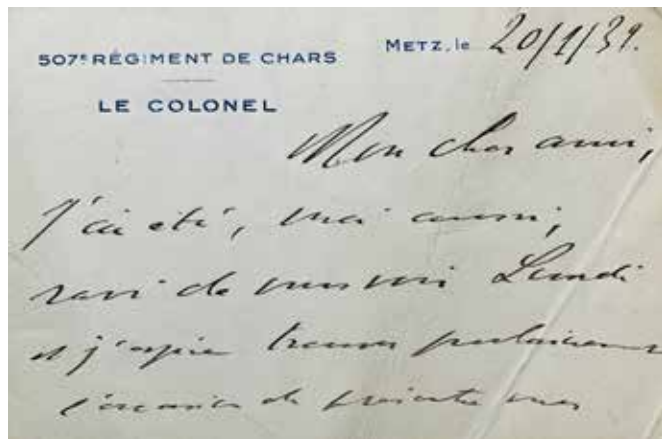 507e RÉGIMENT DE CHARS
METZ, le 20/1/39.
LE COLONEL
Mon cher ami,
J'ai été, moi aussi,
ravi de vous voir Lundi
et j'espère trouver prochainement
l'occasion de présenter mes